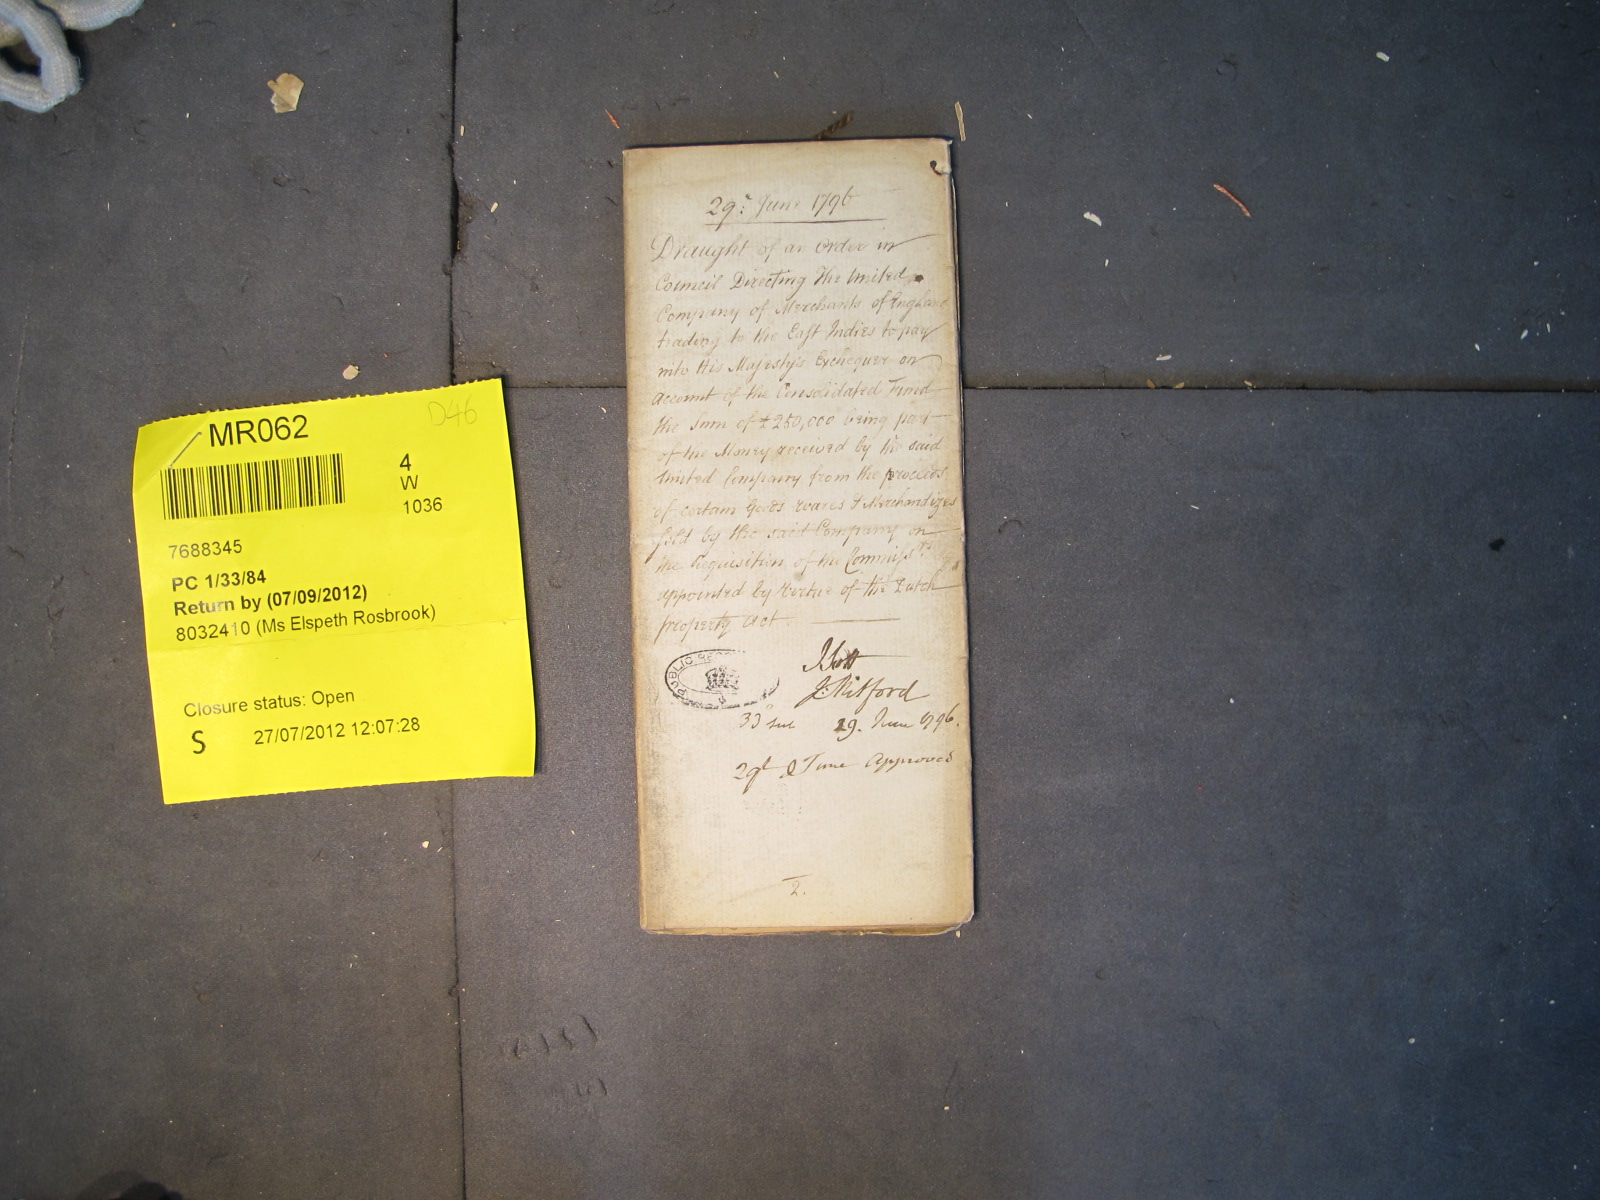 MR062
D46
4
W
1036
7688345
PC 1/33/84
Return by (07/09/2012)
8032410 (Ms Elspeth Rosbrook)
Closure status: Open
S 27/07/2012 12:07:28
29th June 1796
Draught of an Order in
Council Directing The United
Company of Merchants of England
trading to the East Indies to pay
into His Majesty's Exchequer on
Account of the Consolidated Fund
the Sum of £250,000 being part
of the Money received by the said
United Company from the proceeds
of certain Goods wares & Merchandizes
sold by the said Company on
the Requisition of the Commissrs
appointed by Virtue of the Dutch
property Act
PUBLIC
J Scott
J: Mitford
29. June 1796.
29th June Approved
2.